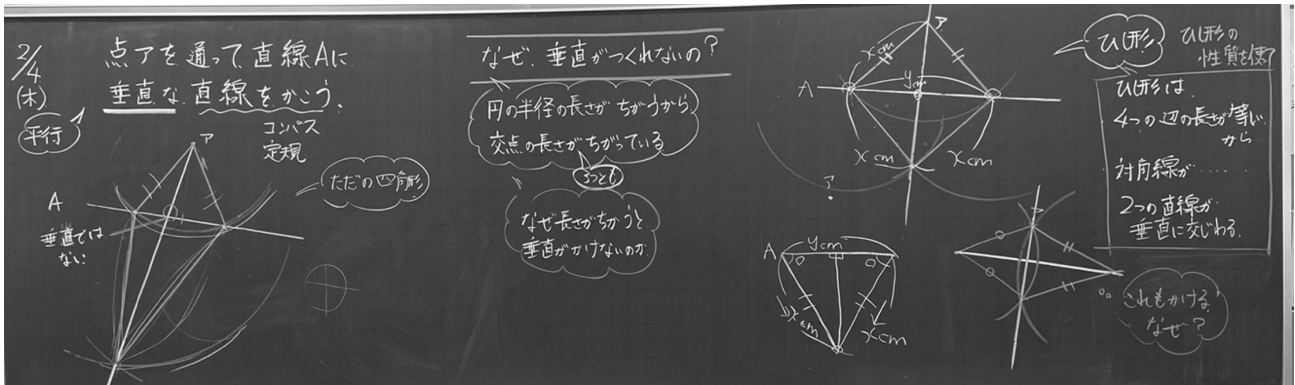 2/4
(木)
点アを通って直線Aに
垂直な直線をかこう。
平行
コンパス
定規
ア
A
垂直では
ない
ただの四角形
なぜ、垂直がつくれないの?
円の半径の長さがちがうから
交点の長さがちがっている
なぜ長さがちがうと
垂直がかけないのか
ア
xcm
ycm
A
xcm
xcm
?
A
ycm
xcm
xcm
ア
ひし形
ひし形の
性質を使って
ひし形は、
4つの辺の長さが等しい
から
対角線が……
2つの直線が
垂直に交じわる。
これもかける
なぜ?